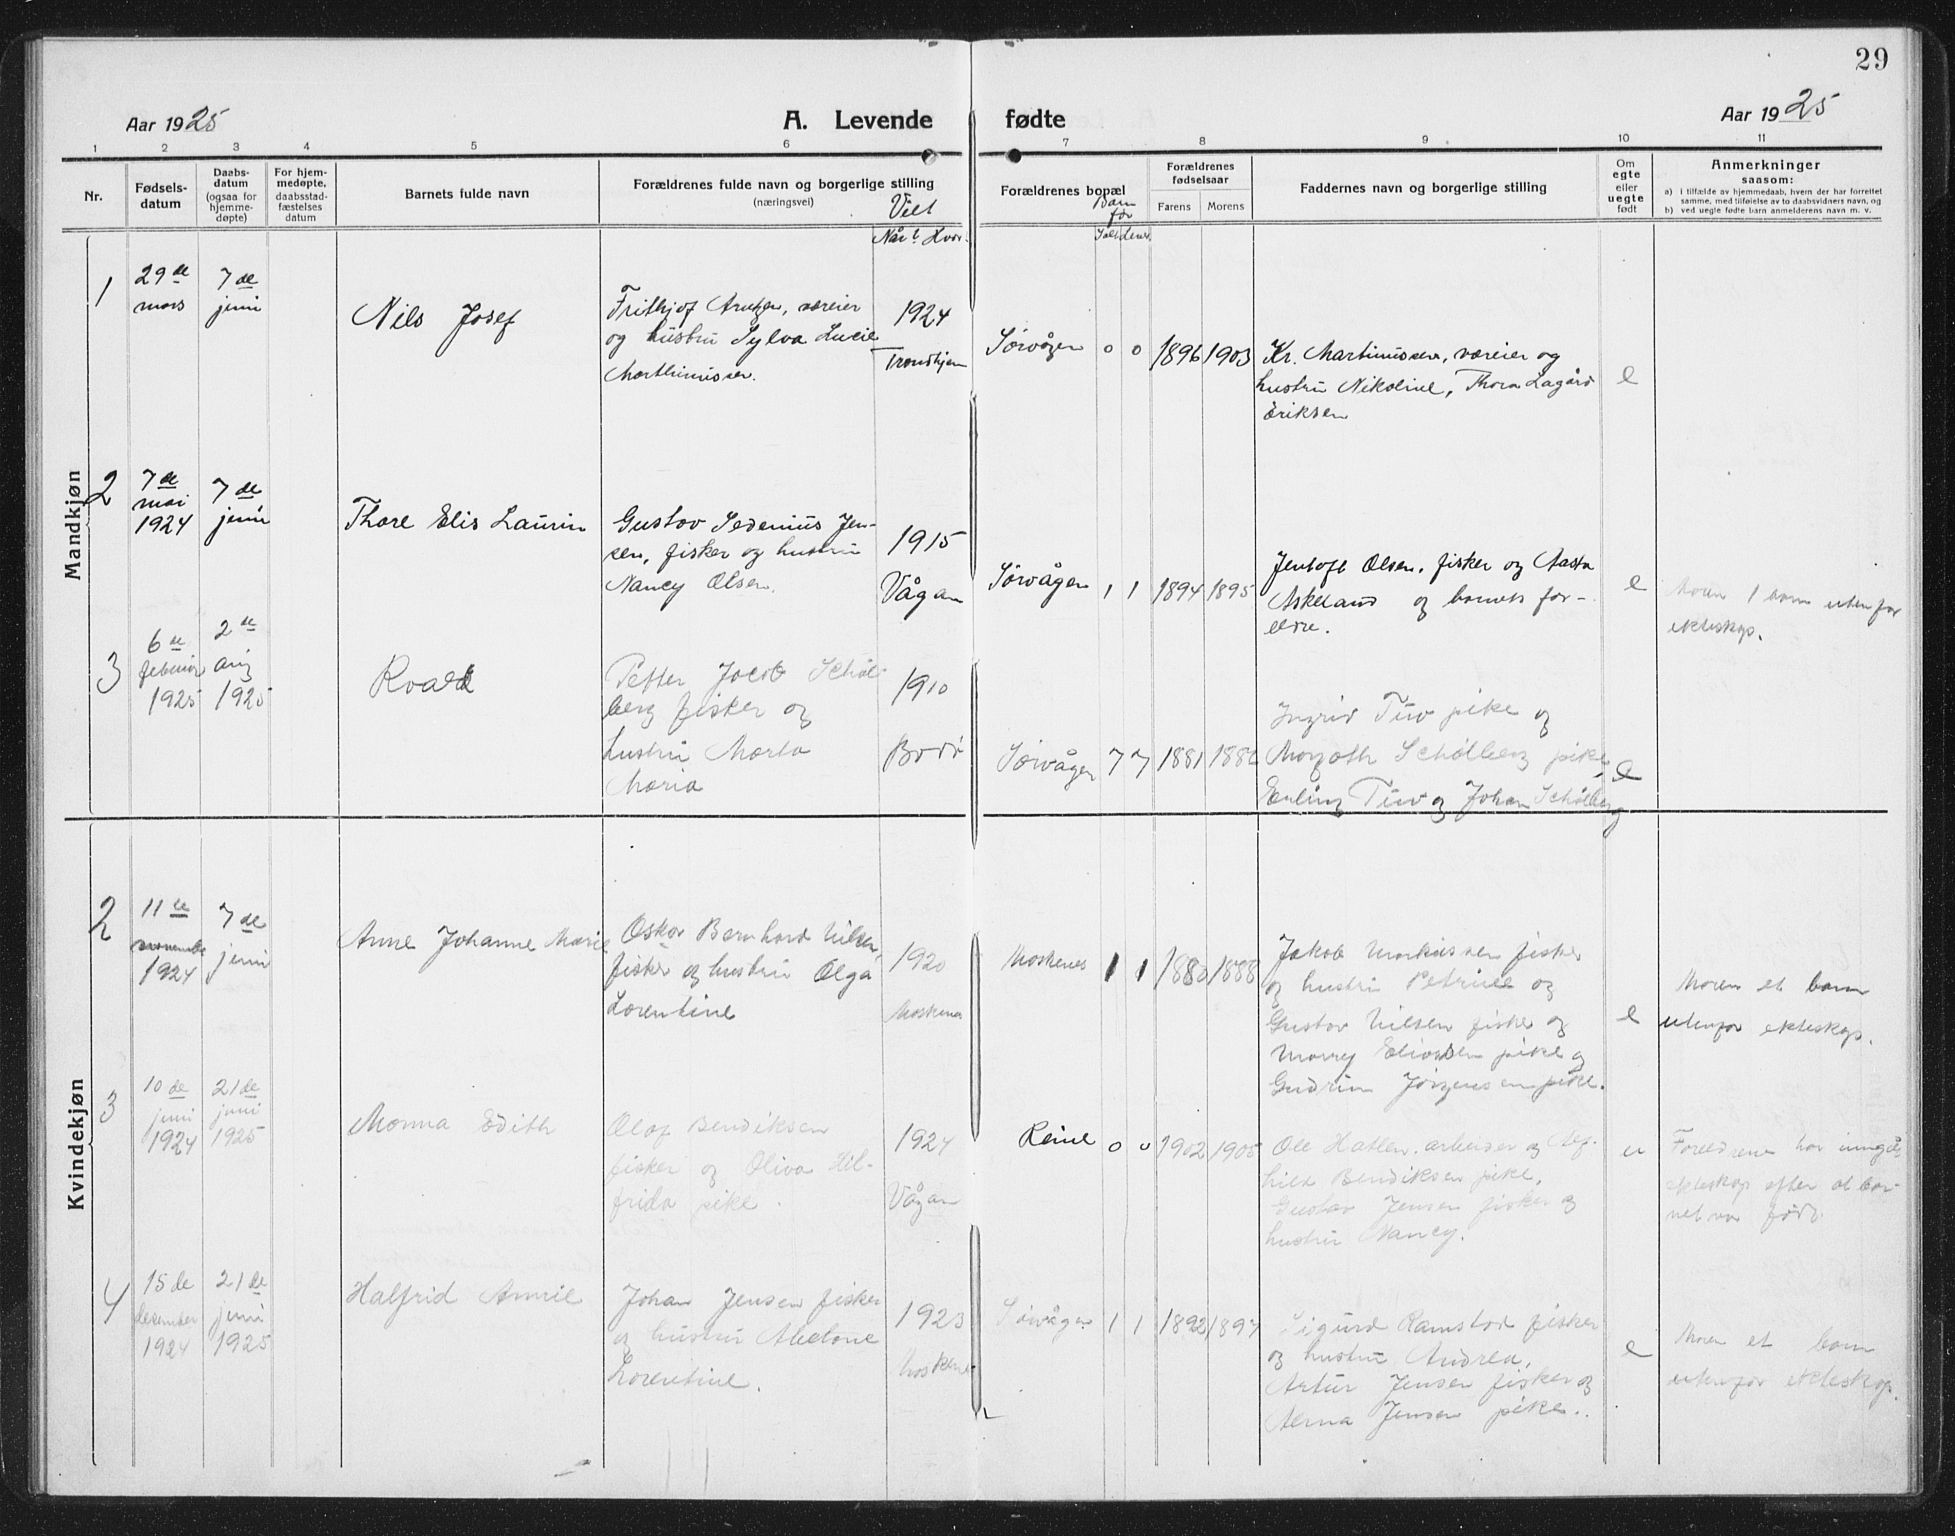 29
Aar 1925
A. Levende fødte
Aar 1925
1 2 3 4 5 6 7 8 9 10 11
Nr.
Fødsels-
datum
Daabs-
datum
(ogsaa for
hjemme-
døpte)
For hjem-
medøpte,
daabsstad-
fæstelses
datum
Barnets fulde navn
Forældrenes fulde navn og borgerlige stilling
(næringsvei)
Viet
Når? Hvor.
Forældrenes bopæl
Barn
før
Forældrenes
fødselsaar
Farens Morens
Faddernes navn og borgerlige stilling
Om
egte
eller
uegte
født
Anmerkninger
saasom:
a) i tilfælde av hjemmedaab, hvem der har forrettet
samme, med tilføielse av to daabsvidners navn, og
b) ved uegte fødte barn anmelderens navn m. v.
Mandkjøn
1
29de
mars
7de
juni
Nils Josef
Frithjof Arntzen, væreier
og hustru Sylva Lucie
Marthinussen.
1924
Trondhjem
Sørvågen 0 0 1896 1903
Kr. Martinussen, væreier og
hustru Nikoline, Thora Lagård
Eriksen
e
2
7de
mai
1924
7de
juni
Thore Elis Laurin
Gustav Sedenius Jen-
sen, fisker og hustru
Nancy Olsen.
1915
Vågan
Sørvågen 1 1 1894 1895
Jentoft Olsen, fisker og Aasta
Askeland og barnets for-
eldre.
e
Moren 1 barn utenfor
ekteskap.
3
6de
februar
1925
2de
aug
1925
Roald
Petter Jacob Schøl-
berg fisker og
hustru Marta
Maria
1910
Bodø
Sørvågen 7 7 1881
Ingrid Tuv pike og
Margoth Schølberg pike,
Erling Tuv og Johan Schølberg
e
Kvindekjøn
2
11te
november
1924
7de
juni
Anne Johanne Marie
Oskar Bernhard Nilsen,
fisker og hustru Olga
Lorentine
1920
Moskenes
Moskenes 1 1 1888
Jakob Markussen fisker
og hustru Petrine og
Gustav Nilsen fisker og
pike og
Gudrun Jørgensen pike.
e
Moren et barn
utenfor ekteskap.
3
10de
juni
1924
21de
juni
1925
Monna Edith
Olaf Bendiksen
fisker og Oliva Hil-
frida pike.
1924
Vågan
Reine 0 0 1902 1905
Ole Hatlen, arbeider og Alf-
hild Bendiksen pike,
Gustav Jensen fisker og
hustru Nancy.
u
Foreldrene har inngåt
ekteskap efter at bar-
net var født.
4
15de
desember
1924
21de
juni
1925
Halfrid Annie
Johan Jensen fisker
og hustru Abelone
Lorentine.
1923
Moskenes
Sørvågen 1 1 1892 1897
Sigurd Ramstad fisker
og hustru Andrea,
Artur Jensen fisker og
Aerna Jensen pike.
e
Moren et barn
utenfor ekteskap.